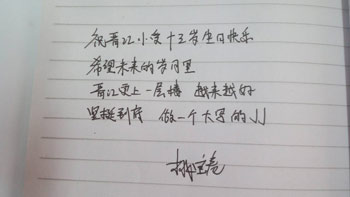 祝晋江小受十三岁生日快乐
希望未来的岁月里
晋江更上一层楼 越来越好
坚挺到底 做一个大写的JJ